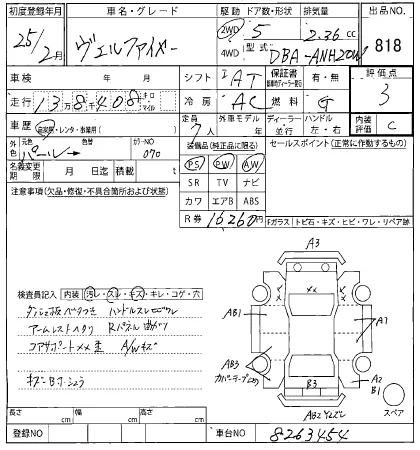 初度登録年月 車名・グレード 駆動 ドア数・形状 排気量 出品NO.
25/2月 ヴェルファイヤー 2WD 5 2.36 cc 818
4WD 型式 DBA-ANH20W
車検 年 月 シフト IAT 保証書 有・無 評価点
走行 13万8千408 キロ マイル 冷房 AC 燃料 G 3
車歴 自家用・レンタ・事業用( ) 定員 7人 外車モデル 年 ディーラー・並行 ハンドル 左・右 内装評価 C
外色 元色 パール 色替 カラーNO 070 装備品(純正品に限る) セールスポイント(正常に作動するもの)
PS PW AW
名義変更期限 月 日迄 積載 t SR TV ナビ
注意事項(欠品・修復・不具合箇所および状態) カワ エアB ABS
R券 16260円 Fガラス トビ石・キズ・ヒビ・ワレ・リペア跡
A3
検査員記入 内装 汚レ・スレ・キズ・キレ・コゲ・穴
ダッシュ板ベタつき ハンドルスレ
アームレストヘタリ Rパネル曲がり
コアサポート メメ A/Wキズ
AB1
A1
AB3
カバーテープ
A2
B1
B3
AB2
スペア
長さ cm 幅 cm 高さ cm
登録NO 車台NO 8263454